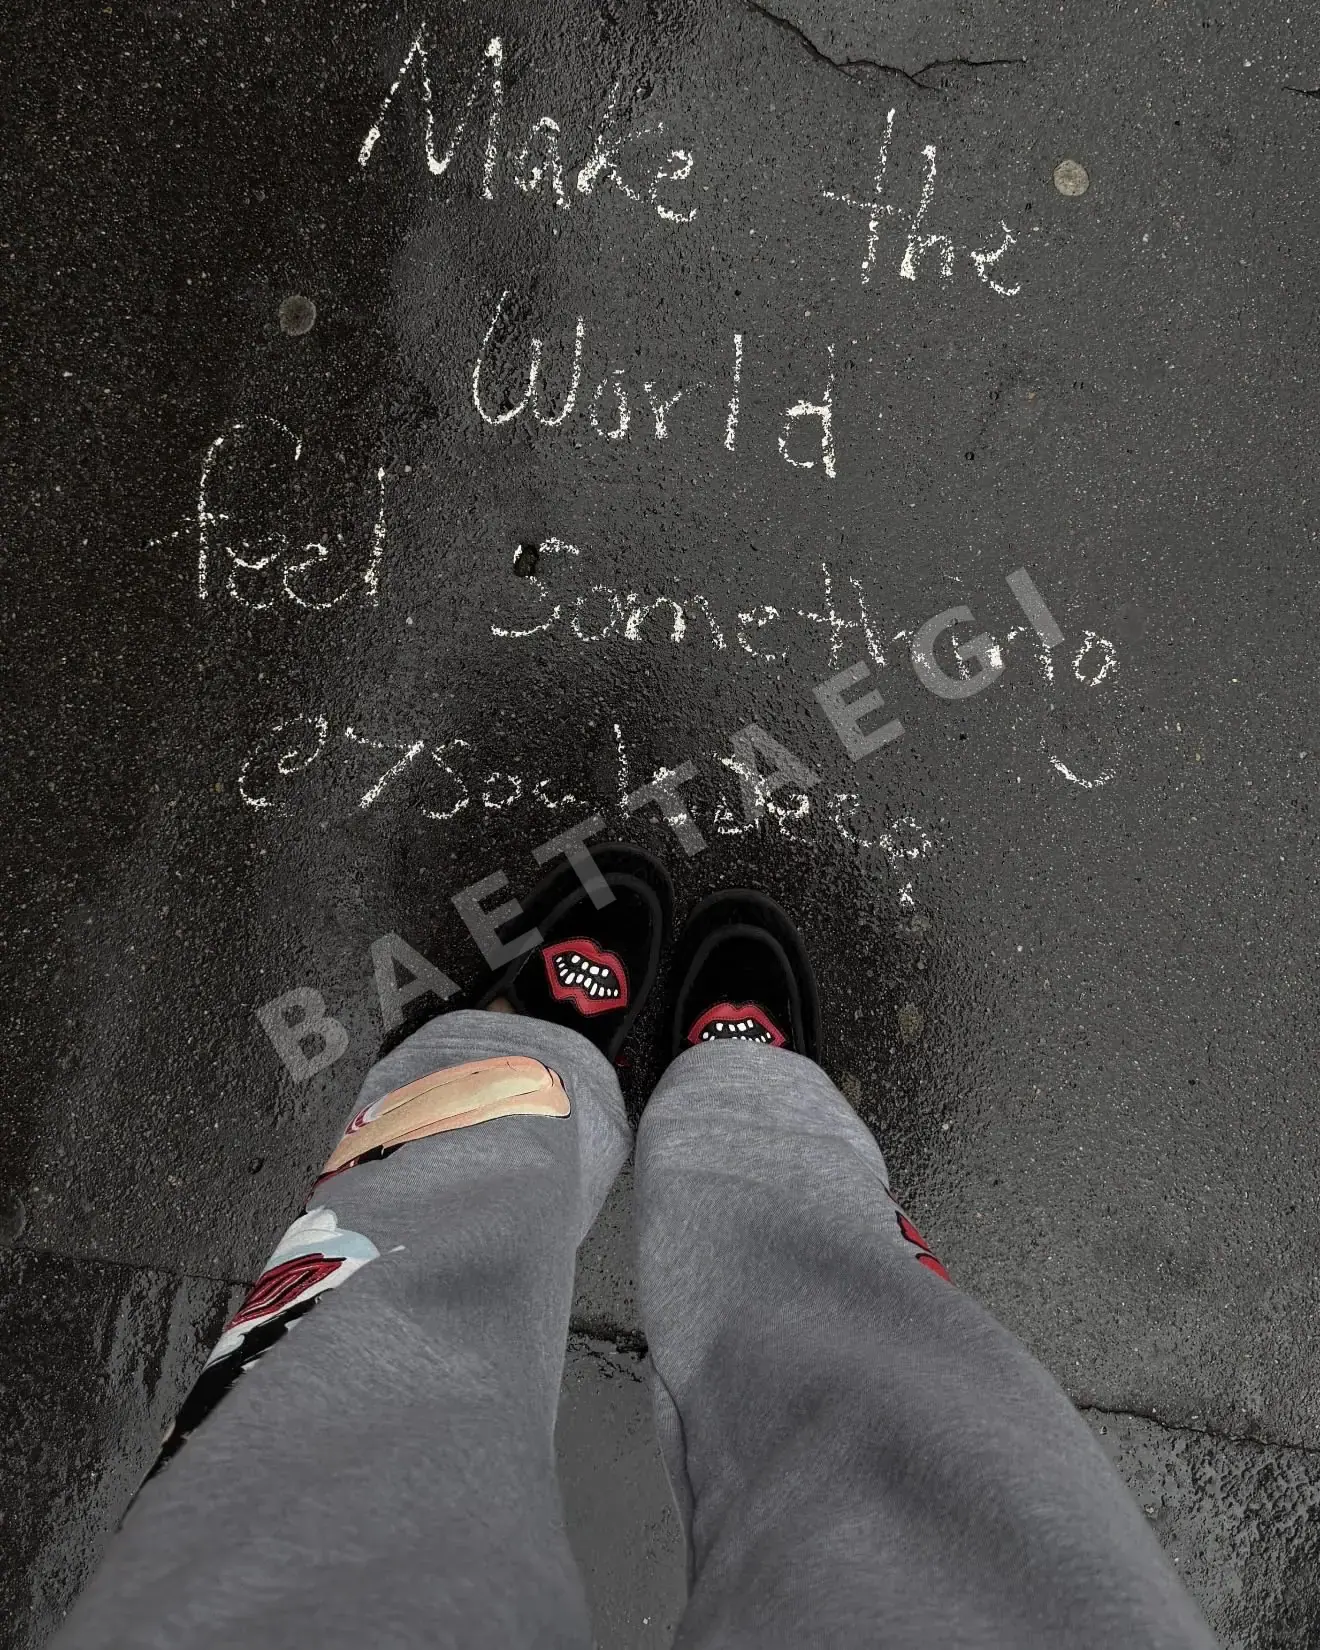 Make the
World
feel Something
BAETTAEGI